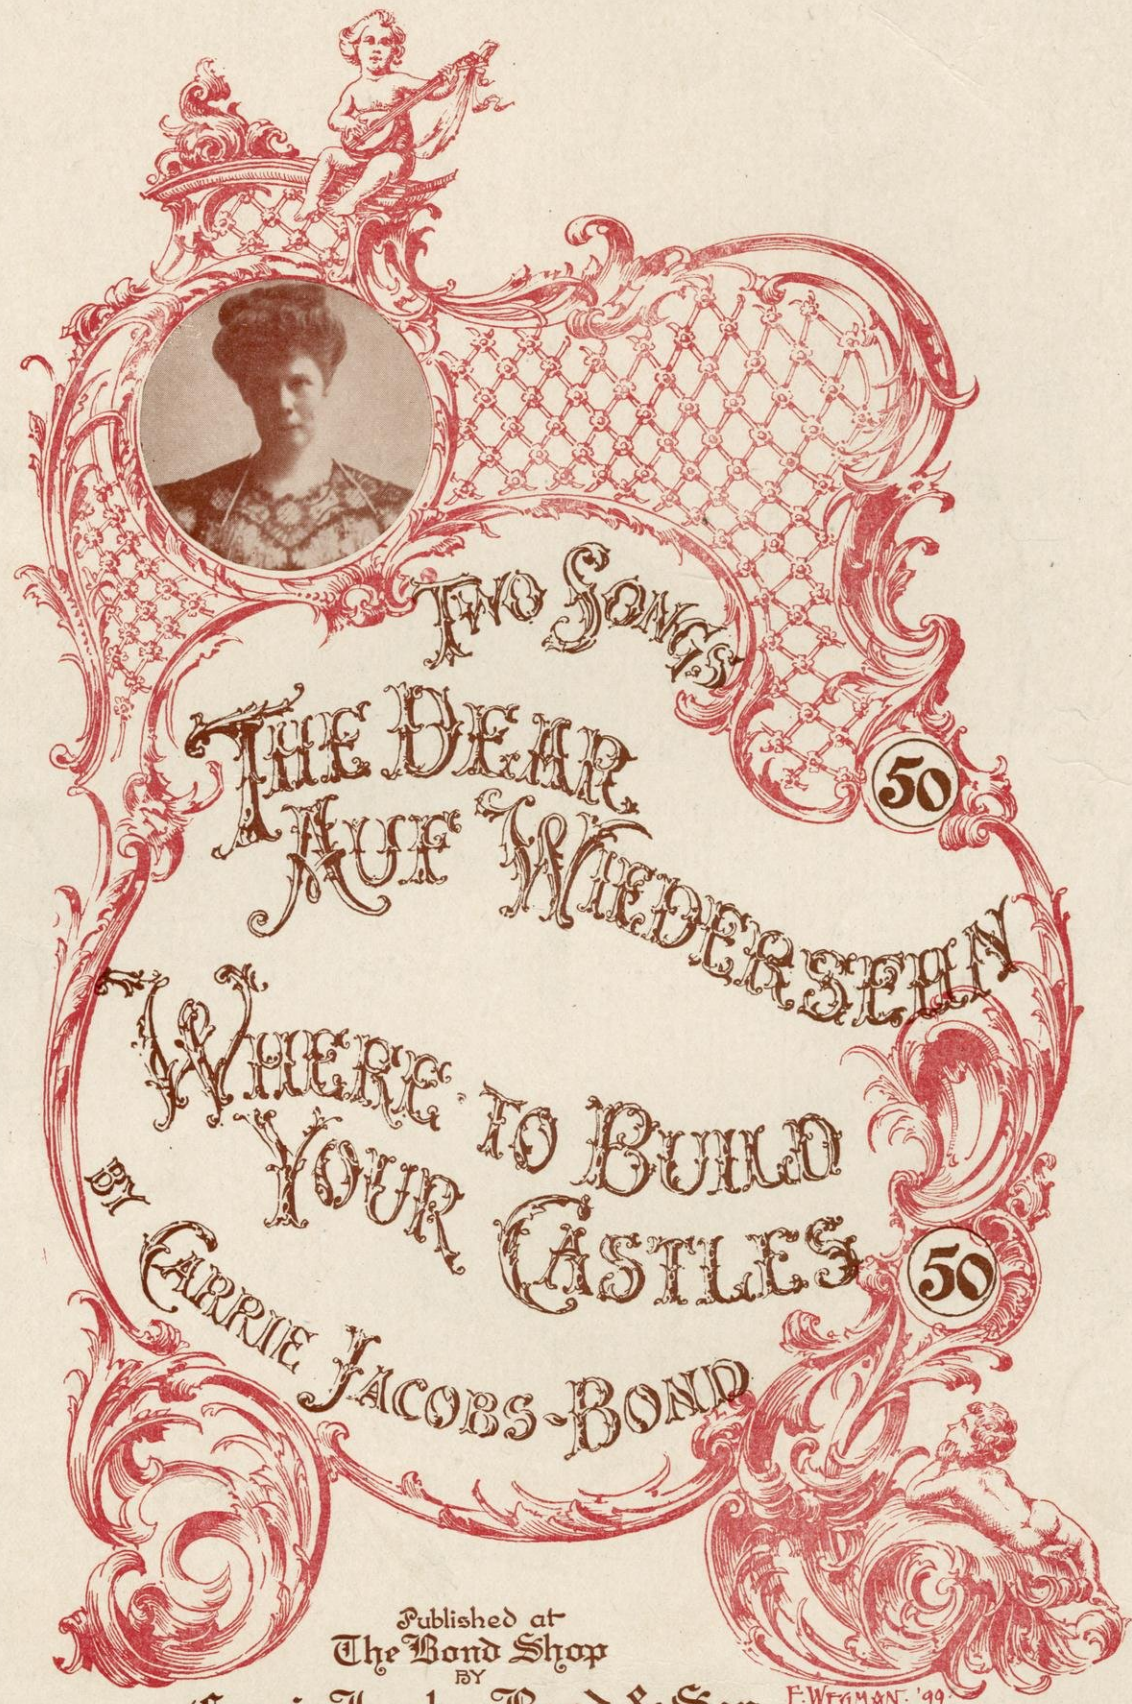 TWO SONGS
THE DEAR
AUF WIEDERSEHN
50
WHERE TO BUILD
YOUR CASTLES
50
BY
CARRIE JACOBS-BOND
Published at
The Bond Shop
BY
Carrie Jacobs-Bond & Son
F. WEGMAN. '99.